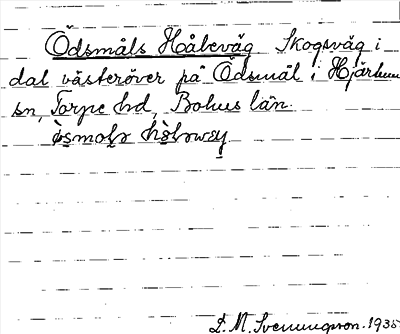 Ödsmåls Hålevåg Skogsväg i
dal västeröver på Ödsmål i Hjärtum
sn, Torpe hd, Bohus län.
òsmols hòləvseg
S. M. Svenungsson. 1935